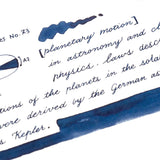 es No. 25
[planetary motion]
A2
in astronomy and cl
physics, laws desc
tions of the planets in the sola
were derived by the German as
s Kepler.